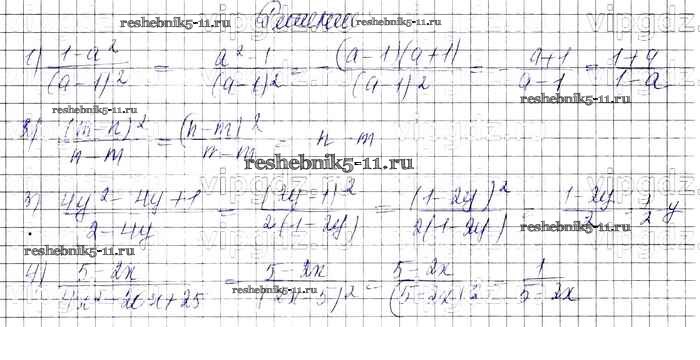 Решение
reshebnik5-11.ru reshebnik5-11.ru
1) (1-a²)/(a-1)² = - (a²-1)/(a-1)² = - (a-1)(a+1)/(a-1)² = - (a+1)/(a-1) = (1+a)/(1-a)
reshebnik5-11.ru reshebnik5-11.ru
2) (m-n)²/(n-m) = (n-m)²/(n-m) = n-m
reshebnik5-11.ru
3) (4y²-4y+1)/(2-4y) = (2y-1)²/2(1-2y) = (1-2y)²/2(1-2y) = (1-2y)/2 = 1/2 - y
reshebnik5-11.ru reshebnik5-11.ru
4) (5-2x)/(4x²-20x+25) = (5-2x)/(2x-5)² = (5-2x)/(5-2x)² = 1/(5-2x)
reshebnik5-11.ru reshebnik5-11.ru